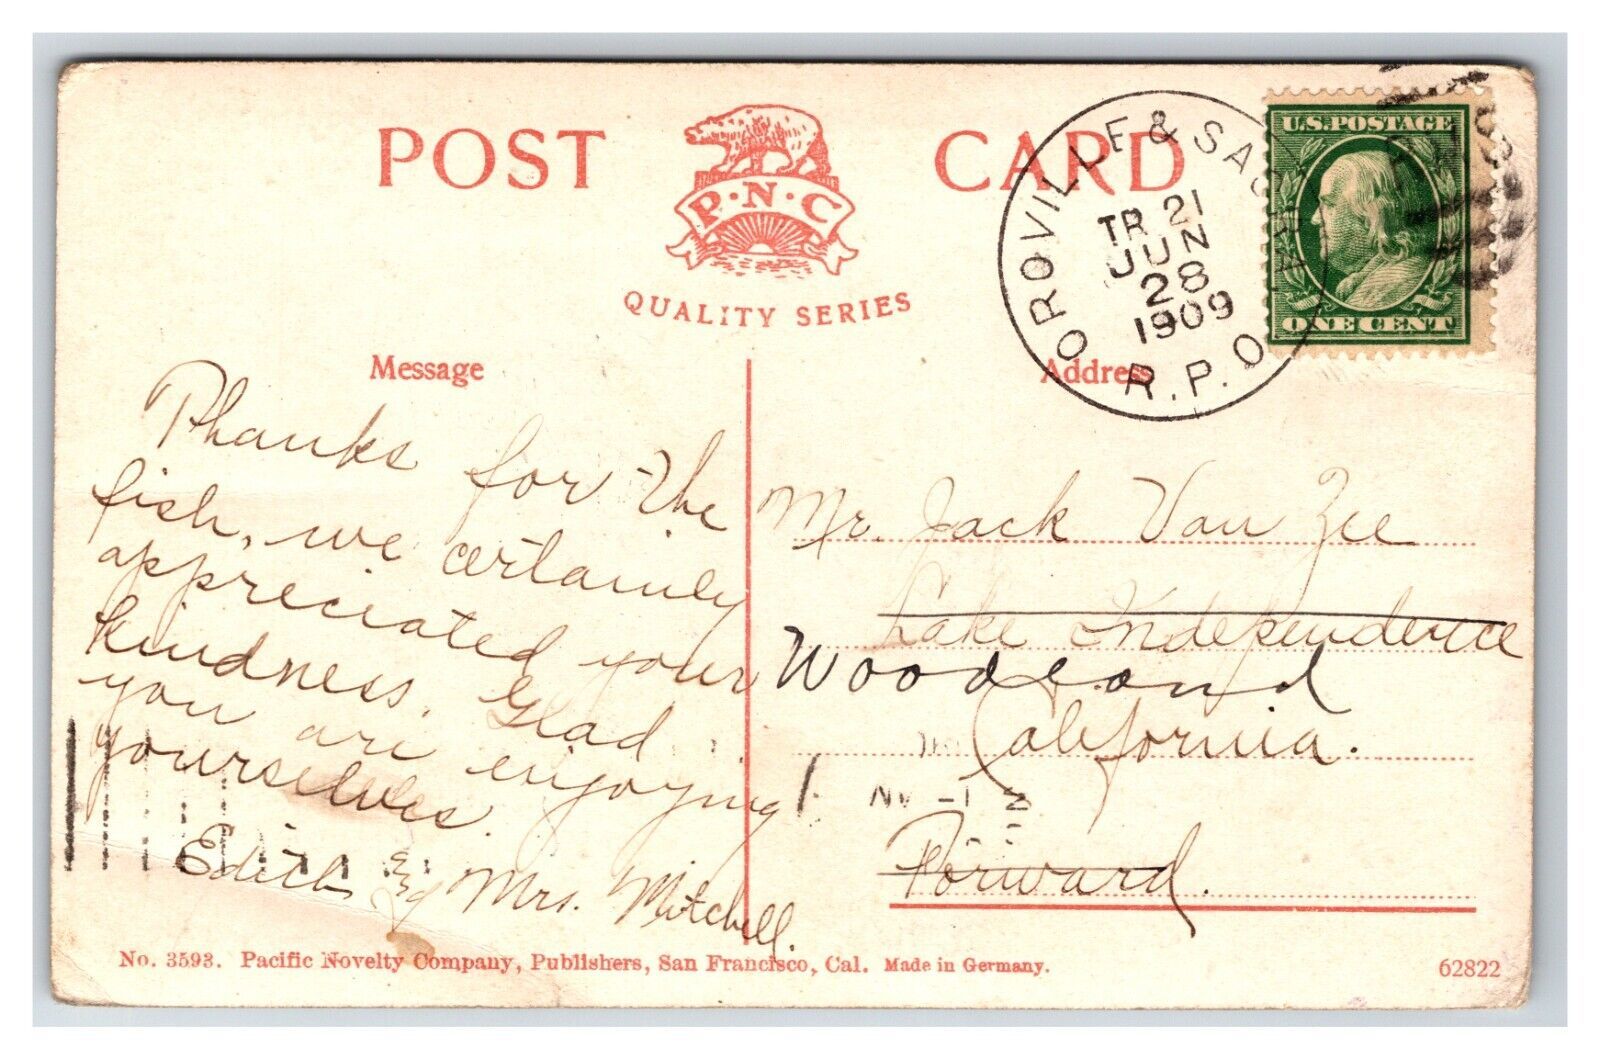 POST CARD
P·N·C
QUALITY SERIES
OROVILLE & SAC'RA.
TR 21
JUN
28
1909
R.P.O.
RMS
U.S.POSTAGE
ONE CENT
Message
Address
Thanks for the
fish, we certainly
appreciated your
kindness. Glad
you are enjoying
yourselves.
Edith & Mrs. Mitchell.
Mr. Jack Van Zee
Lake Independence
Woodland
California.
Forward.
No. 3593. Pacific Novelty Company, Publishers, San Francisco, Cal. Made in Germany.
62822